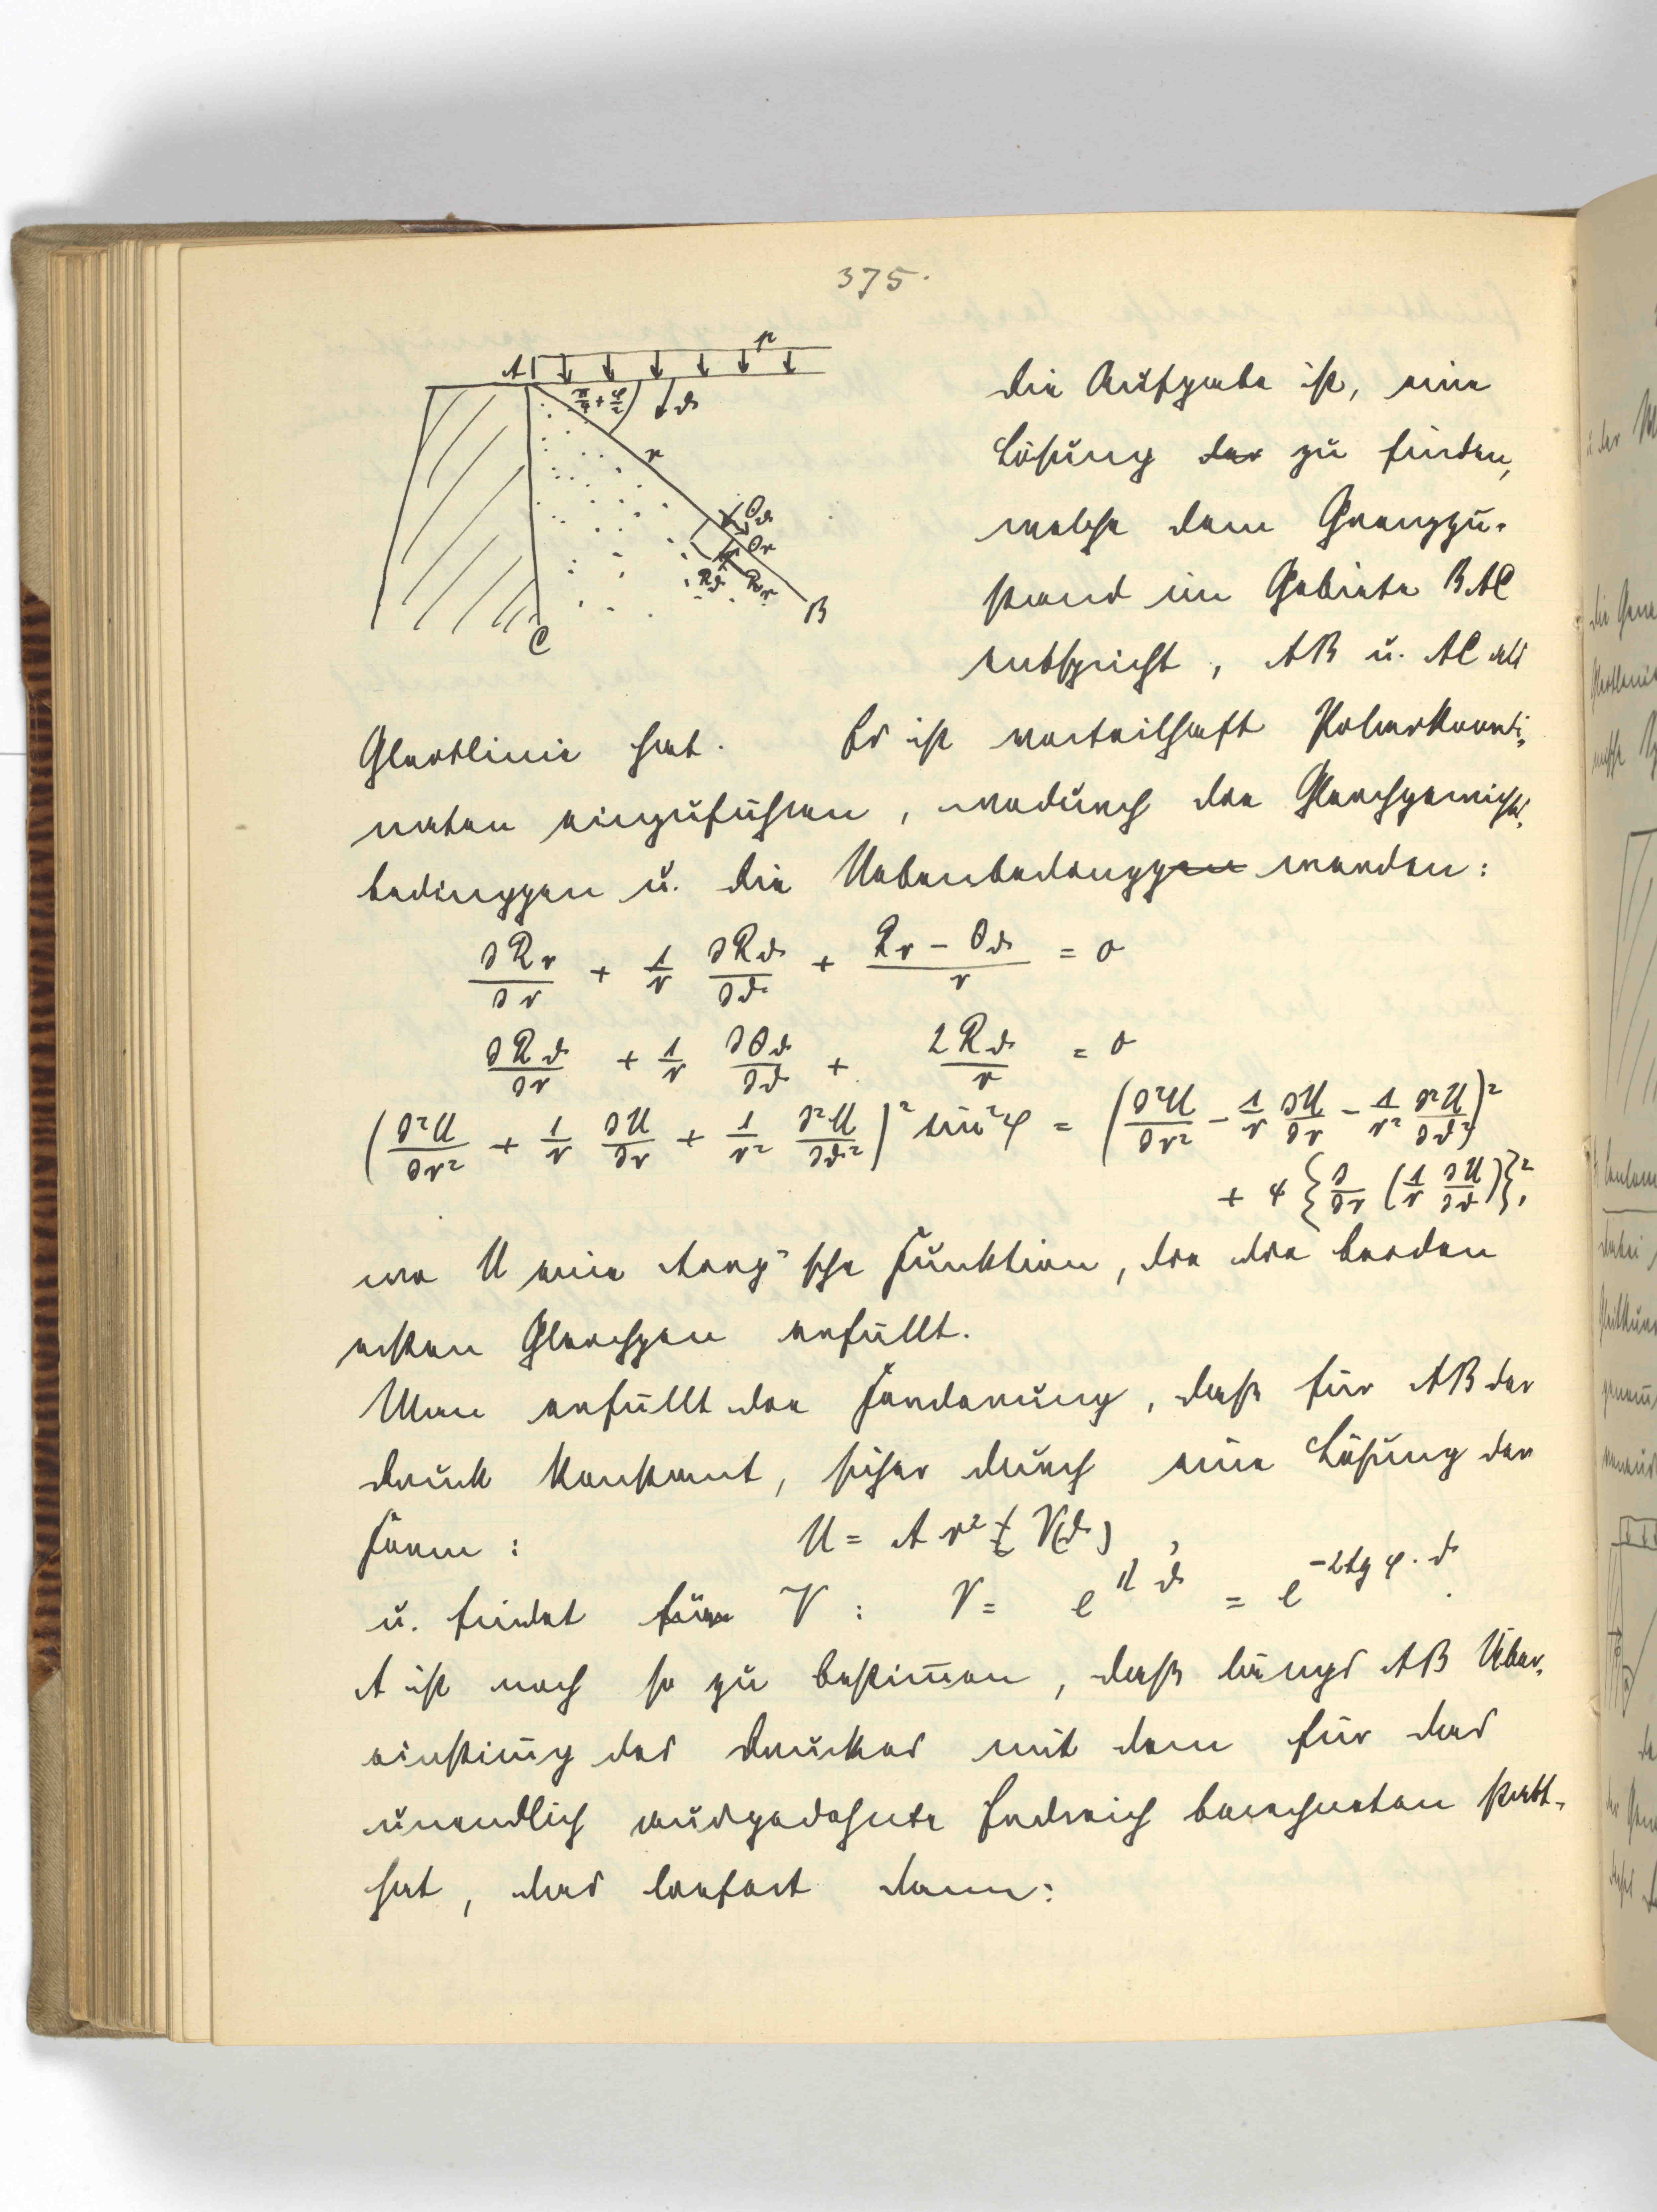 375.
A p
π/4 + φ/2 ϑ
r
Θϑ
Θr
Rϑ Rr
B
C
Die Aufgabe ist, eine
Lösung der zu finden,
welche dem Grenzzu-
stand im Gebiete BAC
entspricht, AB u. AC als
Gleitlinie hat. Es ist vorteilhaft Polarkoordi-
naten einzuführen, wodurch die Gleichgewichts-
bedinggen u. die Nebenbedinggen werden:
∂Rr/∂r + 1/r ∂Rϑ/∂ϑ + (Rr − Θϑ)/r = 0
∂Rϑ/∂r + 1/r ∂Θϑ/∂ϑ + 2Rϑ/r = 0
(∂²U/∂r² + 1/r ∂U/∂r + 1/r² ∂²U/∂ϑ²)² sin²φ = (∂²U/∂r² − 1/r ∂U/∂r − 1/r² ∂²U/∂ϑ²)²
+ 4 {∂/∂r (1/r ∂U/∂ϑ)}²,
wo U eine Airy'sche Funktion, die die beiden
ersten Gleichgen erfüllt.
Man erfüllt die Forderung, daß für AB der
Druck konstant, sicher durch eine Lösung der
Form: U = A r² V(ϑ) ,
u. findet für V : V = e ϑ = e^{−2tg φ · ϑ}.
A ist noch so zu bestimmen, daß längs AB Über-
einstimmg des Druckes mit dem für das
unendlich ausgedehnte Erdreich berechneten statt-
hat, das liefert dann: